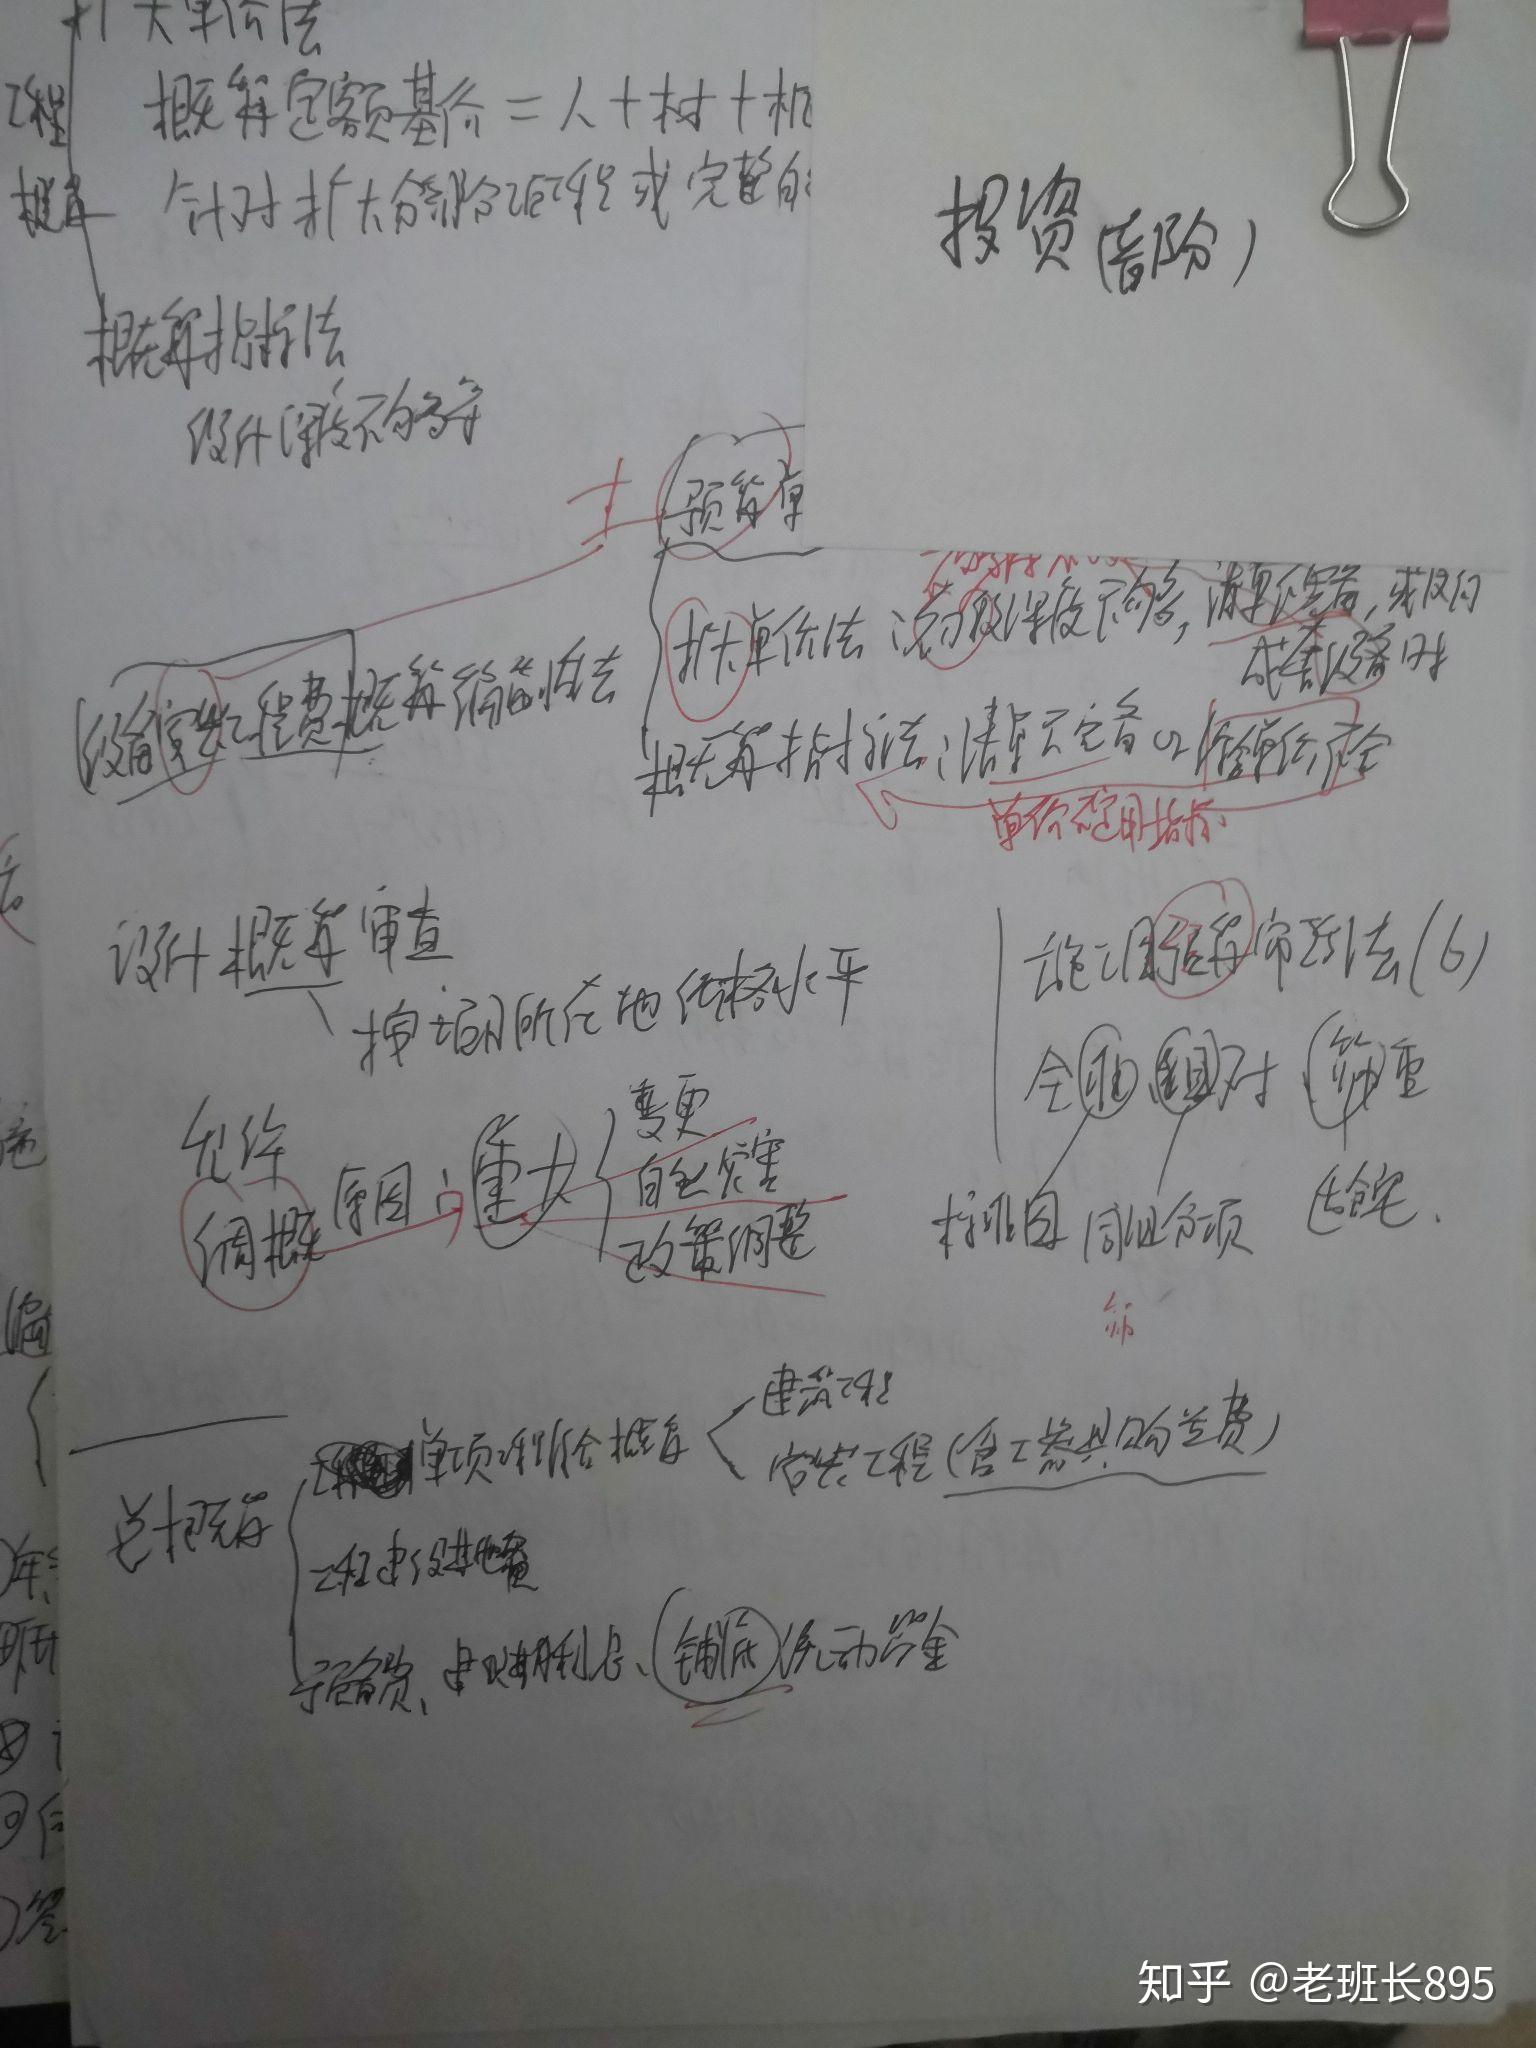 扩大单价法
工程
概算定额基价=人+材+机
概算
针对扩大分部分项工程或完整的
投资(部分)
概算指标法
设计深度不够等
预算单
扩大单价法:初设深度不够,清单不完备,或仅有
成套设备时
设备安装工程费概算编制办法
概算指标法:清单不完备or
单价不全用指标
设计概算审查
按项目所在地价格水平
施工图预算审查法(6)
全 对 筛重
允许
调概
原因:重大
变更
自然灾害
政策调整
标准图
同组分项
筛
单项工程综合概算
建筑工程
安装工程(含工器具购置费)
总概算
工程建设其他费
预备费、建设期利息、铺底流动资金
知乎 @老班长895